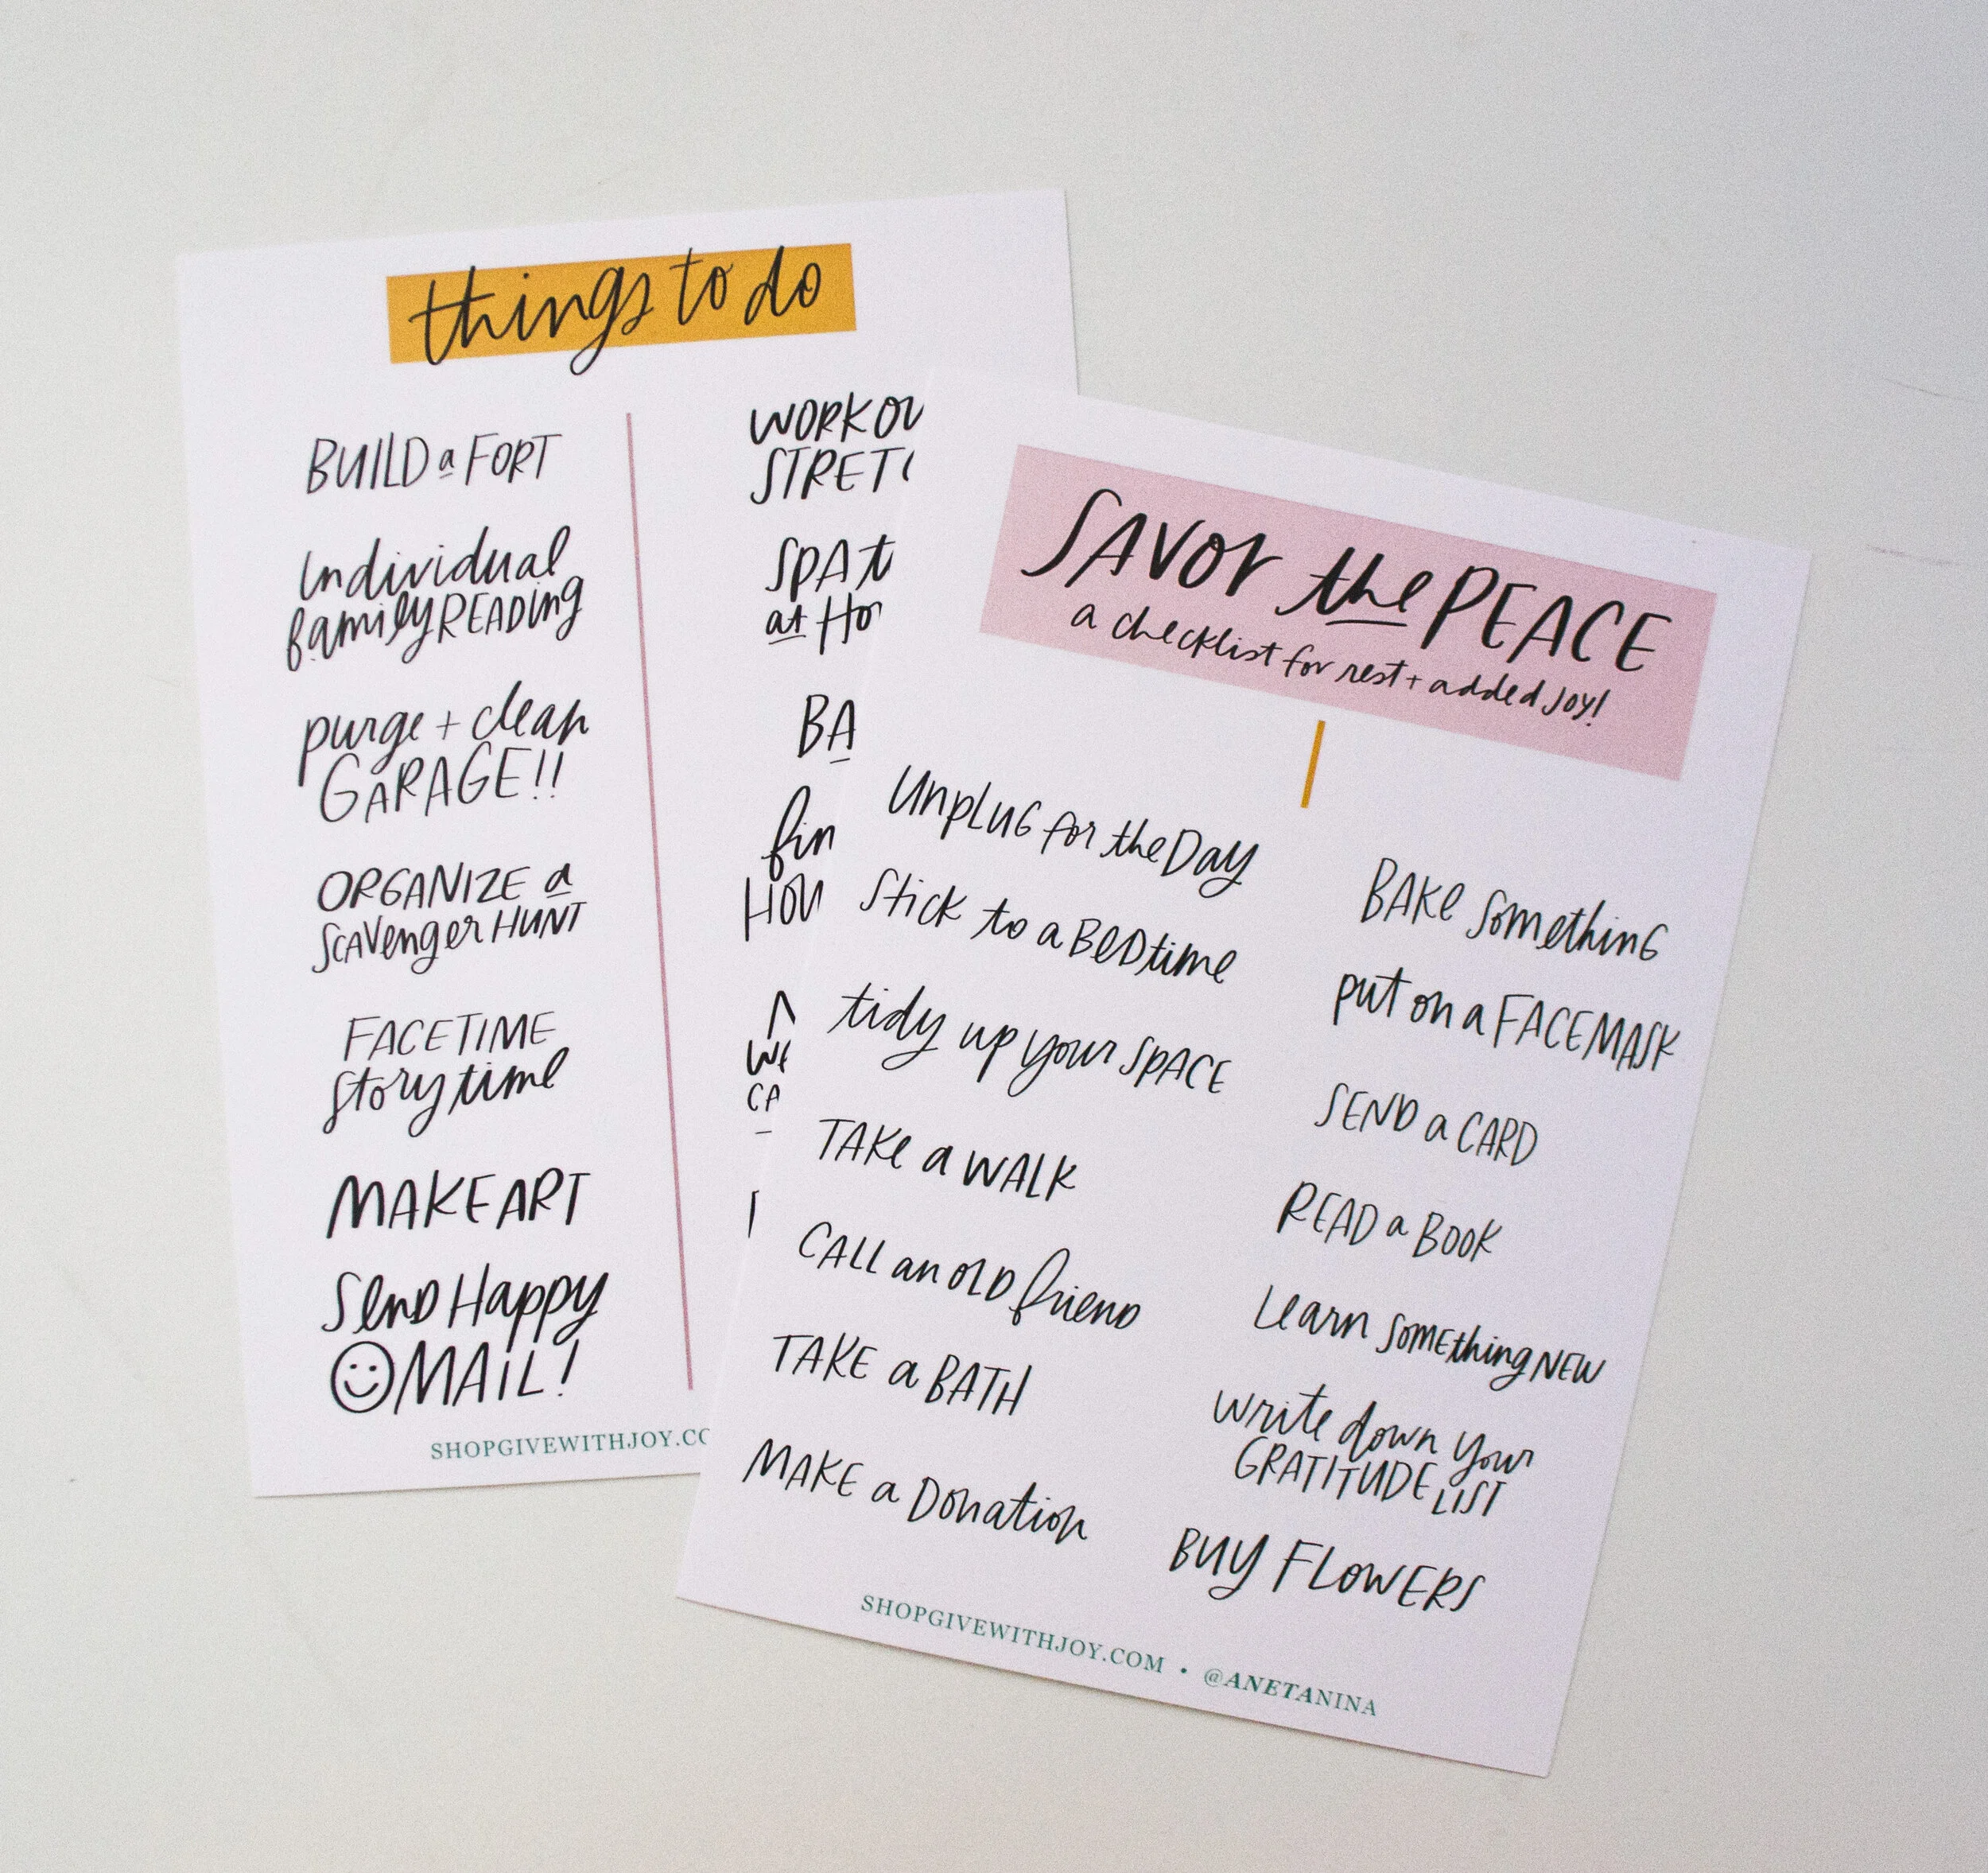 things to do
BUILD a FORT
Individual
family READING
purge + clean
GARAGE!!
ORGANIZE a
SCAVENGER HUNT
FACETIME
story time
MAKE ART
SEND HAPPY
MAIL!
SPA
at
SHOPGIVEWITHJOY.CO
SAVOR the PEACE
a checklist for rest + added joy!
UNPLUG for the DAY
STICK to a BEDtime
tidy up your SPACE
TAKE a WALK
CALL an OLD friend
TAKE a BATH
MAKE a Donation
BAKE something
put on a FACEMASK
SEND a CARD
READ a BOOK
Learn SOMEthing NEW
write down your
GRATITUDE LIST
BUY FLOWERS
SHOPGIVEWITHJOY.COM • @ANETANINA